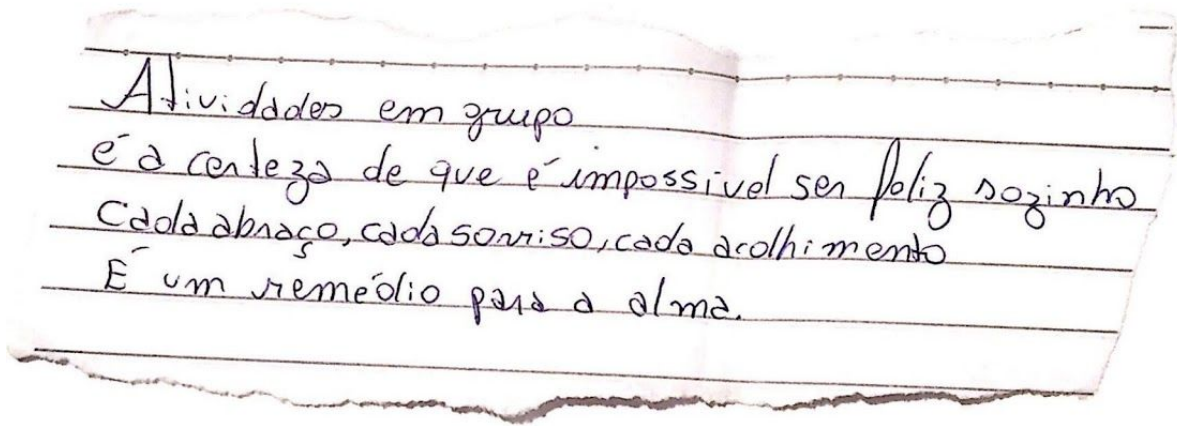 Atividades em grupo
é a certeza de que é impossível ser feliz sozinho
Cada abraço, cada sorriso, cada acolhimento
É um remédio para a alma.